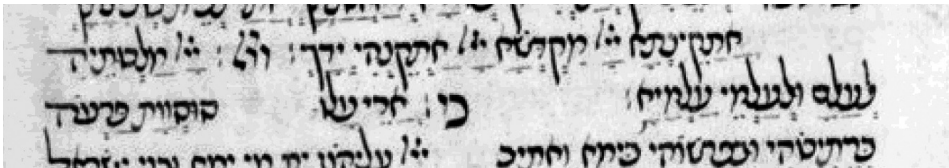 אתקינתא ייי מקדשא ייי אתקנהי ידך: ייי מלכותיה
לעלם ולעלמי עלמיא: כי ארי עלו סוסוות פרעה
ברתיכוהי ובפרשוהי בימא ואתיב ייי עליהון ית מי ימא ובני ישראל